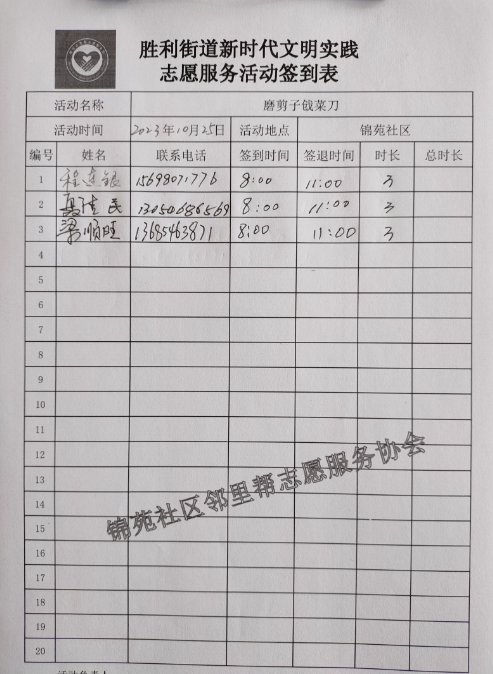 胜利街道新时代文明实践
志愿服务活动签到表
活动名称 磨剪子戗菜刀
活动时间 2023年10月25日 活动地点 锦苑社区
编号 姓名 联系电话 签到时间 签退时间 时长 总时长
1 程连银 15698071776 8:00 11:00 3
2 聂佳民 13050686569 8:00 11:00 3
3 梁顺旺 13685463871 8:00 11:00 3
4
5
6
7
8
9
10
11
12
13
14
15
16
17
18
19
20
锦苑社区邻里帮志愿服务协会